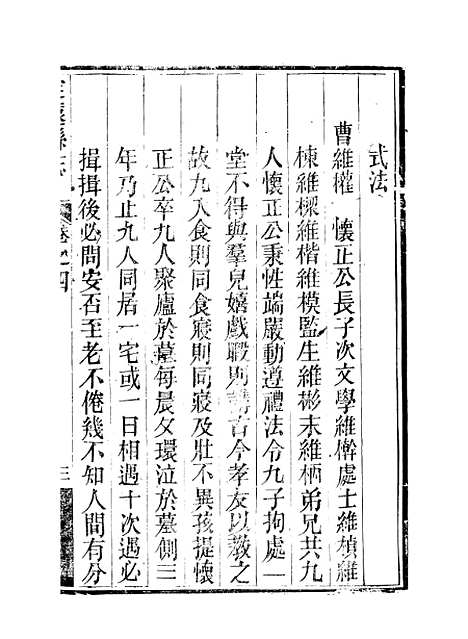 式法
曹維權　懷正公長子次文學維檊處士維楨維
棟維樑維楷維模監生維彬末維栖弟兄共九
人懷正公秉性端嚴動遵禮法令九子拘處一
堂不得與羣兒嬉戲暇則講古今孝友以教之
故九人食則同食寢則同寢及壯不異孩提懷
正公卒九人聚廬於墓每晨夕環泣於墓側三
年乃止九人同居一宅或一日相遇十次遇必
揖揖後必問安否至老不倦幾不知人間有分
縣志
卷之四
三